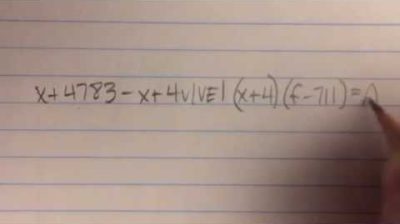 x+4783-x+4√1VE1(x+4)(f-711)=